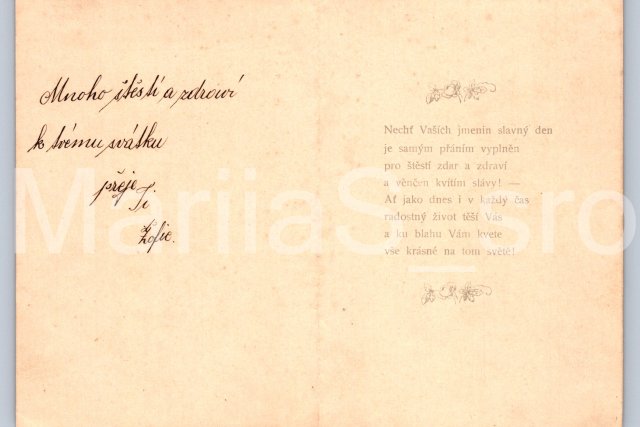 Mnoho štěstí a zdraví
k tvému svátku
přeje Ti
Žofie.
Nechť Vašich jmenin slavný den
je samým přáním vyplněn
pro štěstí zdar a zdraví
a věnčen kvítím slávy! —
Ať jako dnes i v každý čas
radostný život těší Vás
a ku blahu Vám kvete
vše krásné na tom světě!
MariiaS_sro